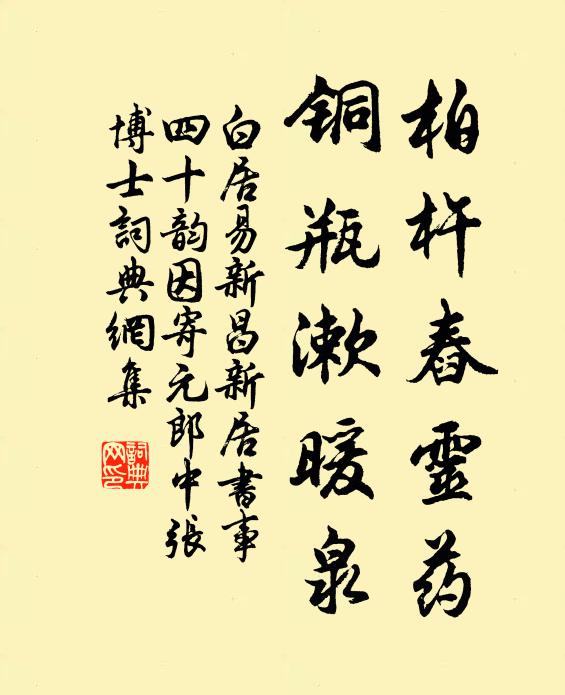 柏杵舂靈药
銅瓶漱暖泉
白居易新昌新居書事
四十韵因寄元郎中張
博士詞典網集
詞典网印